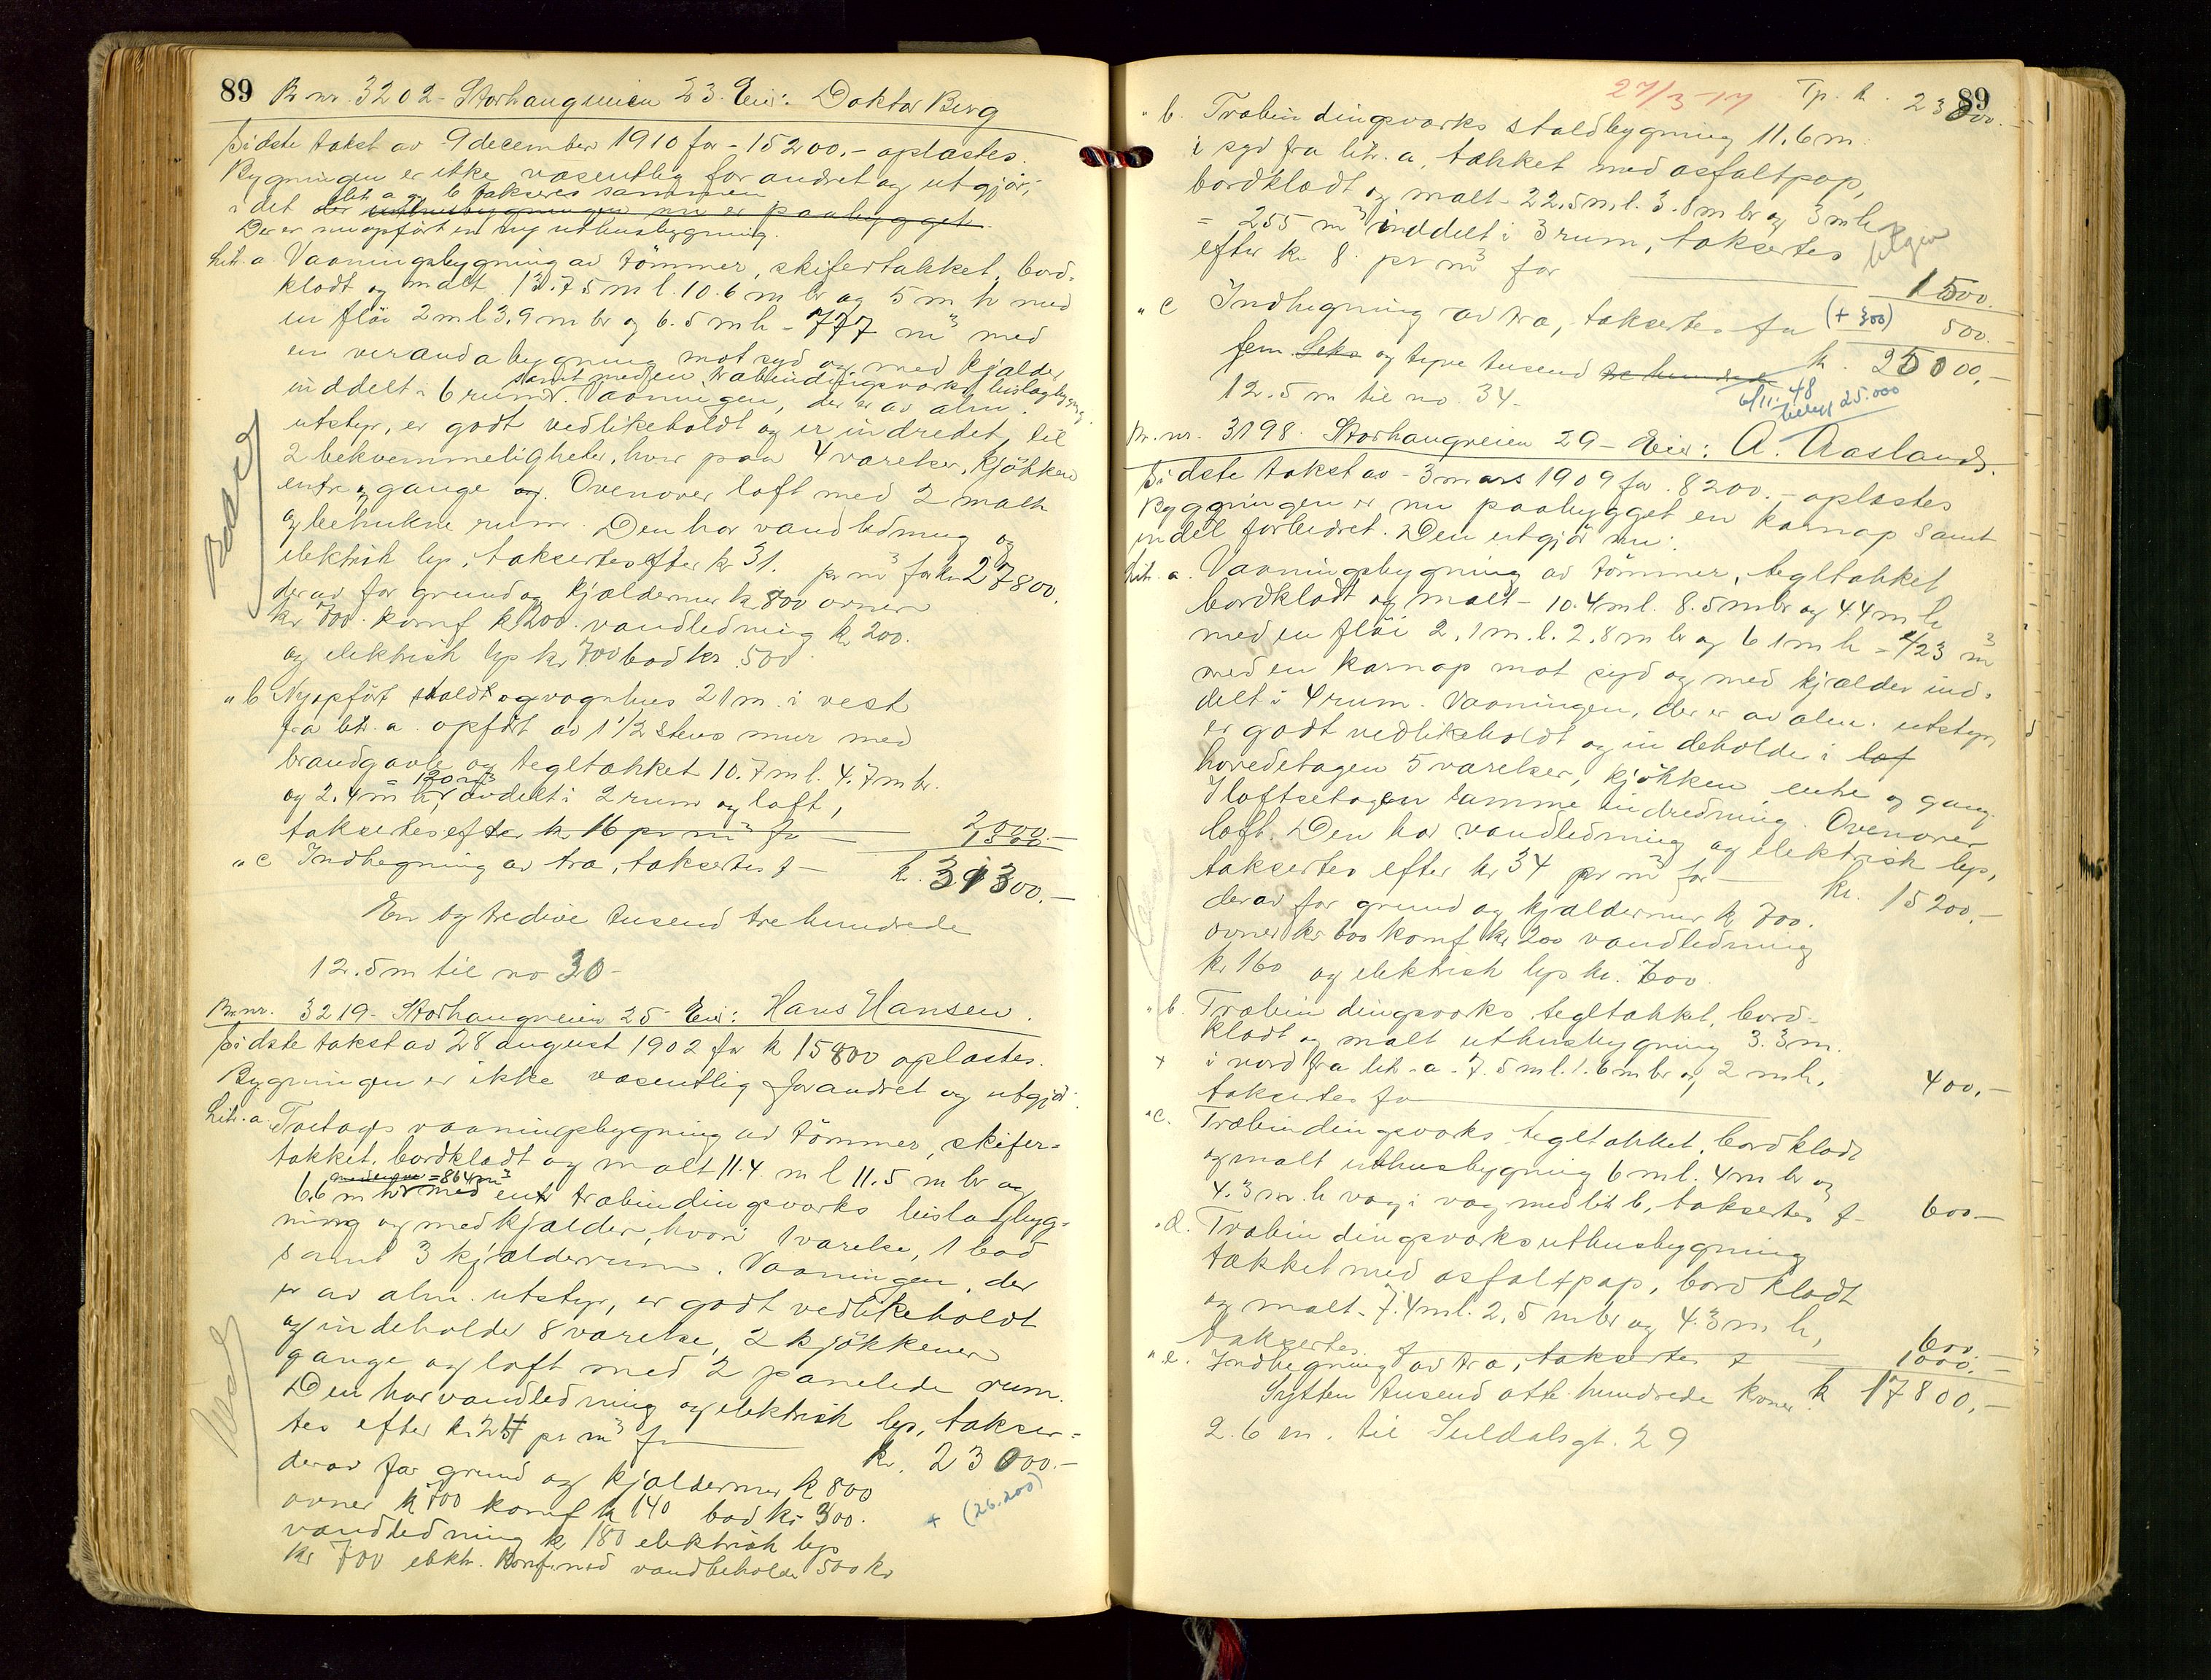 89 Br nr. 3202 - Storhaugveien 23. Eier: Doktor Berg
Sidste takst av 9 december 1910 for - 15200.- oplæstes.
Bygningen er ikke væsentlig forandret og utgjør;
lit a og b takseres sammen
i det der uthusbygningen nu er paabygget.
Der er nu opført en ny uthusbygning.
Litr. a Vaaningsbygning av tømmer, skifertækket, bord-
klædt og malt 13.75 m l. 10.6 m br og 5 m h med
en fløi 2 m l 3.9 m br og 6.5 m h = 777 m³ med
en verandabygning mot syd og med kjælder
samt med en træbindingsverks bislagbygning
inddelt i 6 rum. Vaaningen, der er av alm.
utstyr, er godt vedlikeholdt og er indredet til
2 bekvemmeligheter, hver paa 4 værelser, kjøkken
entre og gange og. Ovenover loft med 2 malte
og betrukne rum. Den har vandledning og
elektrisk lys, taksertes efter kr 31. pr m³ for kr 27800.
derav for grund og kjældermur kr 800 ovner
kr 700. komf kr 200. vandledning kr 200.
og elektrisk lys kr 700 bad kr. 500
" b Nyopført stald og vognhus 21 m. i vest
fra litr. a. opført av 1 1/2 stens mur med
brandgavle og tegltækket 10.7 m l. 4.7 m br.
= 120 m³
og 2.4 m h, avdelt i 2 rum og loft,
taksertes efter kr 16 pr m³ for 2000.-
" c Indhegning av træ, taksertes f - 1500.-
kr. 31300.-
En og tredive tusend tre hundrede
12.5 m til no 30-
Br.nr. 3219 - Storhaugveien 25 - Eier: Hans Hansen.
Sidste takst av 28 august 1902 for kr 15800 oplæstes.
Bygningen er ikke væsentlig forandret og utgjør:
Litr. a. Toetages vaaningsbygning av tømmer, skifer-
tækket, bordklædt og malt 11.4 m l 11.5 m br og
= 864 m³
6.6 m h med en træbindingsverks bislagbyg-
ning og med kjælder, hvori 1 værelse, 1 bad
samt 3 kjælderrum. Vaaningen, der
er av alm. utstyr, er godt vedlikeholdt
og indeholder 8 værelse, 2 kjøkkener
gange og loft med 2 panelede rum.
Den har vandledning og elektrisk lys, takser-
tes efter kr. 24 pr m³ for kr. 23000.-
derav for grund og kjældermur kr 800
ovner kr 700 komf kr 140 bad kr 300.
+ (26.200)
vandledning kr 180 elektrisk lys
kr 700 elektr. Komf. med vandbeholder 500 kr
27/3-17 Tp. kr. 23000.- 89
" b. Træbindingsverks staldbygning 11.6 m.
i syd fra litr. a, tækket med asfaltpap,
bordklædt og malt - 22.5 m l. 3.8 m br og 3 m h
= 255 m³ inddelt i 3 rum, taksertes
efter kr 8. pr m³ for 1500.
" c Indhegning av træ, taksertes for (+ 300) 500.-
fem Seks og tyve tusend kr. 25000,-
6/11-48
25.000
12.5 m til no. 34-
Br. nr. 3198. Storhaugveien 29 - Eier: A. Aasland.
Sidste takst av - 3 mars 1909 for. 8200.- oplæstes
Bygningen er nu paabygget en karnap samt
endel forbedret. Den utgjør nu:
Litr. a. Vaaningsbygning av tømmer, tegltækket
bordklædt og malt - 10.4 m l. 8.5 m br og 4.4 m h
med en fløi 2.1 m. l. 2.8 m br og 6.1 m h = 423 m³
med en karnap mot syd og med kjælder ind-
delt i 4 rum. Vaaningen, der er av alm. utstyr,
er godt vedlikeholdt og indeholder i lof
hovedetagen 5 værelser, kjøkken entre og gang.
I loftsetagen samme indredning. Ovenover
loft. Den har vandledning og elektrisk lys,
taksertes efter kr 34 pr m³ for - kr. 15200.-
derav for grund og kjældermur kr 700.
ovner kr 600 komf kr 200 vandledning
kr 160 og elektrisk lys kr. 600.
" b. Træbindingsverks, tegltækket, bord-
klædt og malt uthusbygning 3.3 m.
+ i nord fra litr. a - 7.5 m l. 1.6 m br og 2 m h.
taksertes for 400.-
" c. Træbindingsverks, tegltækket, bordklædt
og malt uthusbygning 6 m l. 4 m br og
4.3 m. h væg i væg med litr b, taksertes f - 600.-
" d. Træbindingsverks uthusbygning
tækket med asfaltpap, bordklædt
og malt - 7.4 m l. 2.5 m br og 4.3 m h,
taksertes f 600.
" e. Indhegning av træ, taksertes f 1000.-
Sytten tusend otte hundrede kroner kr 17800,-
2.6 m. til Suldalsgt. 29